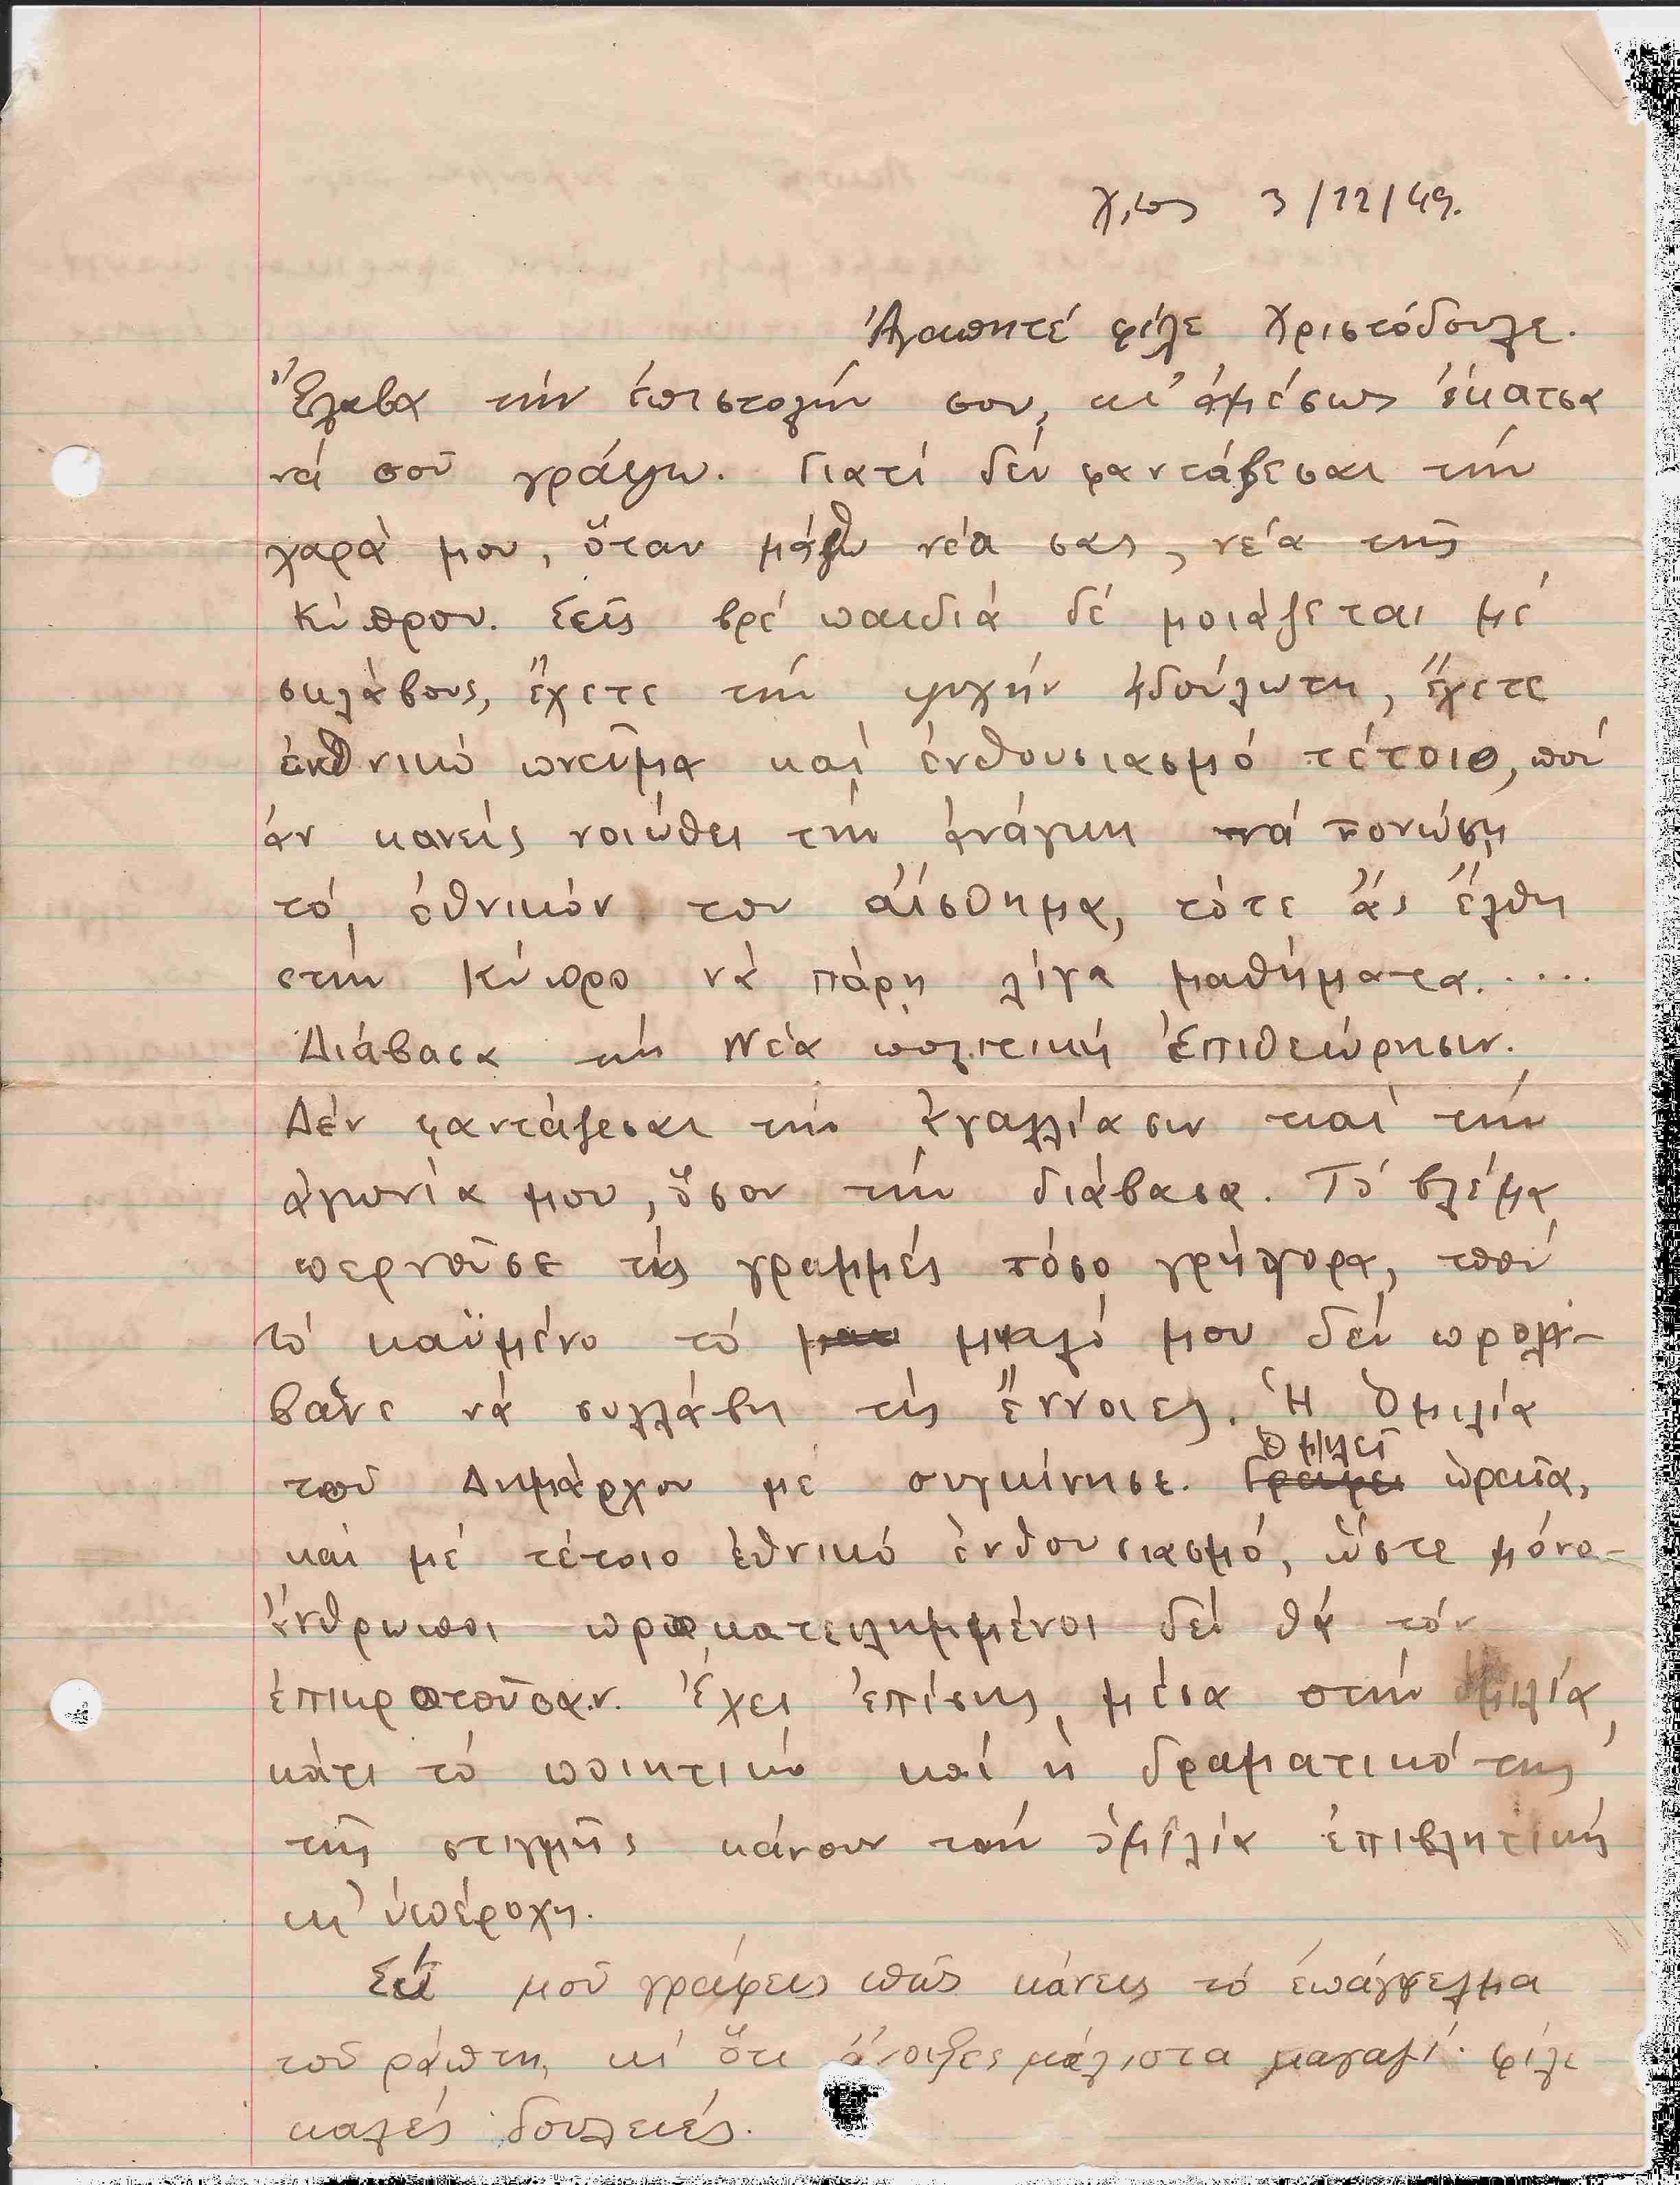 Χίος 3/12/49.
Ἀγαπητέ φίλε Χριστόδουλε.
Ἔλαβα τήν ἐπιστολήν σου, κι' ἀμέσως ἔκατσα
νά σοῦ γράψω. Γιατί δέν φαντάζεσαι τήν
χαρά μου, ὅταν μάθω νέα σας, νέα τῆς
Κύπρου. Σεῖς βρέ παιδιά δέ μοιάζεται μέ
σκλάβους, ἔχετε τήν ψυχήν ἀδούλωτη, ἔχετε
ἐθνικό πνεῦμα καί ἐνθουσιασμό τέτοιο, πού
ἄν κανείς νοιώθει τήν ἀνάγκη νά τονώση
τό ἐθνικόν του αἴσθημα, τότε ἄς ἔλθη
στήν Κύπρο νά πάρη λίγα μαθήματα.....
Διάβασα τή Νέα πολιτική Ἐπιθεώρησιν.
Δέν φαντάζεσαι τήν ἀγαλλίασιν καί τήν
ἀγωνία μου, ὅσον τήν διάβασα. Τό βλέμα
περνοῦσε τίς γραμμές τόσο γρήγορα, πού
τό καϋμένο τό μυαλό μου δέν προλά-
βαινε νά συλλάβη τίς ἔννοιες. Ἡ Ὁμιλία
τοῦ Δημάρχου μέ συγκίνησε. Ὁμιλεῖ ὡραῖα,
καί μέ τέτοιο ἐθνικό ἐνθουσιασμό, ὥστε μόνο
ἄνθρωποι προκατειλημμένοι δέν θά τόν
ἐπικροτοῦσαν. Ἔχει ἐπίσης μέσα στήν ὁμιλία
κάτι τό ποιητικό καί ἡ δραματικότης
τῆς στιγμῆς κάνουν τήν ὁμιλία ἐπιβλητική
κι' ὑπέροχη.
Ἐσύ μοῦ γράφεις πῶς κάνεις τό ἐπάγγελμα
τοῦ ράπτη, κι ὅτι ἄνοιξες μάλιστα μαγαζί. φίλε
καλές δουλειές.